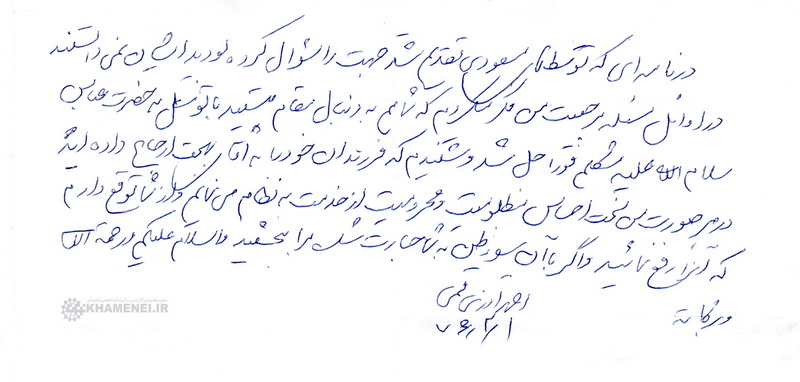 در نامه ای که توسط آقای مسعودی تقدیم شد جهت را سؤال کرده بودید ایشان نمی دانستند
در اوائل مسئله مرجعیت من فکر میکردم که شما هم به دنبال مقام هستید با توسل به حضرت عباس
سلام الله علیه مشکلم فوراً حل شد و شنیدم که فرزندان خود را به آقای بهجت ارجاع داده اید
در هر صورت من سخت احساس مظلومیت و محرومیت از خدمت به نظام می نمایم و از شما توقع دارم
که آنرا رفع نمائید و اگر با آن سوء ظن به شما جسارت شد مرا ببخشید والسلام علیکم ورحمة الله
وبرکاته
آذری قمی
۷۶/۳/۱
KHAMENEI.IR